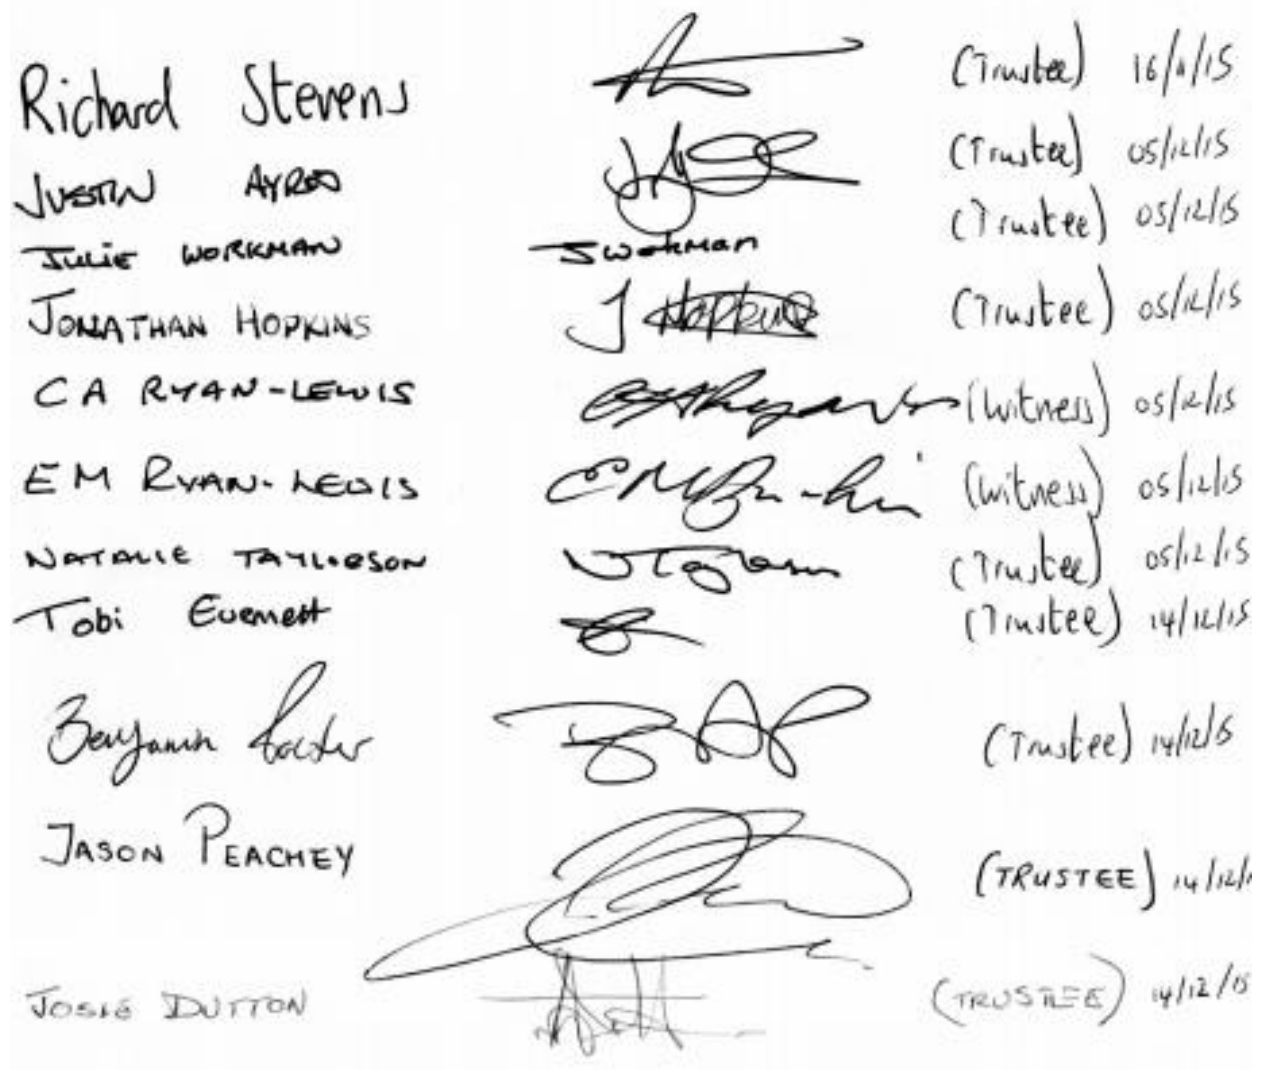 Richard Stevens (Trustee) 16/11/15
JUSTIN AYRES (Trustee) 05/12/15
JULIE WORKMAN JWorkman (Trustee) 05/12/15
JONATHAN HOPKINS J Hopkins (Trustee) 05/12/15
CA RYAN-LEWIS (Witness) 05/12/15
EM RYAN-LEWIS (Witness) 05/12/15
NATALIE TAYLORSON (Trustee) 05/12/15
Tobi Evernett (Trustee) 14/12/15
Benjamin (Trustee) 14/12/15
JASON PEACHEY (TRUSTEE) 14/12/1
JOSIE DUTTON (TRUSTEE) 14/12/15